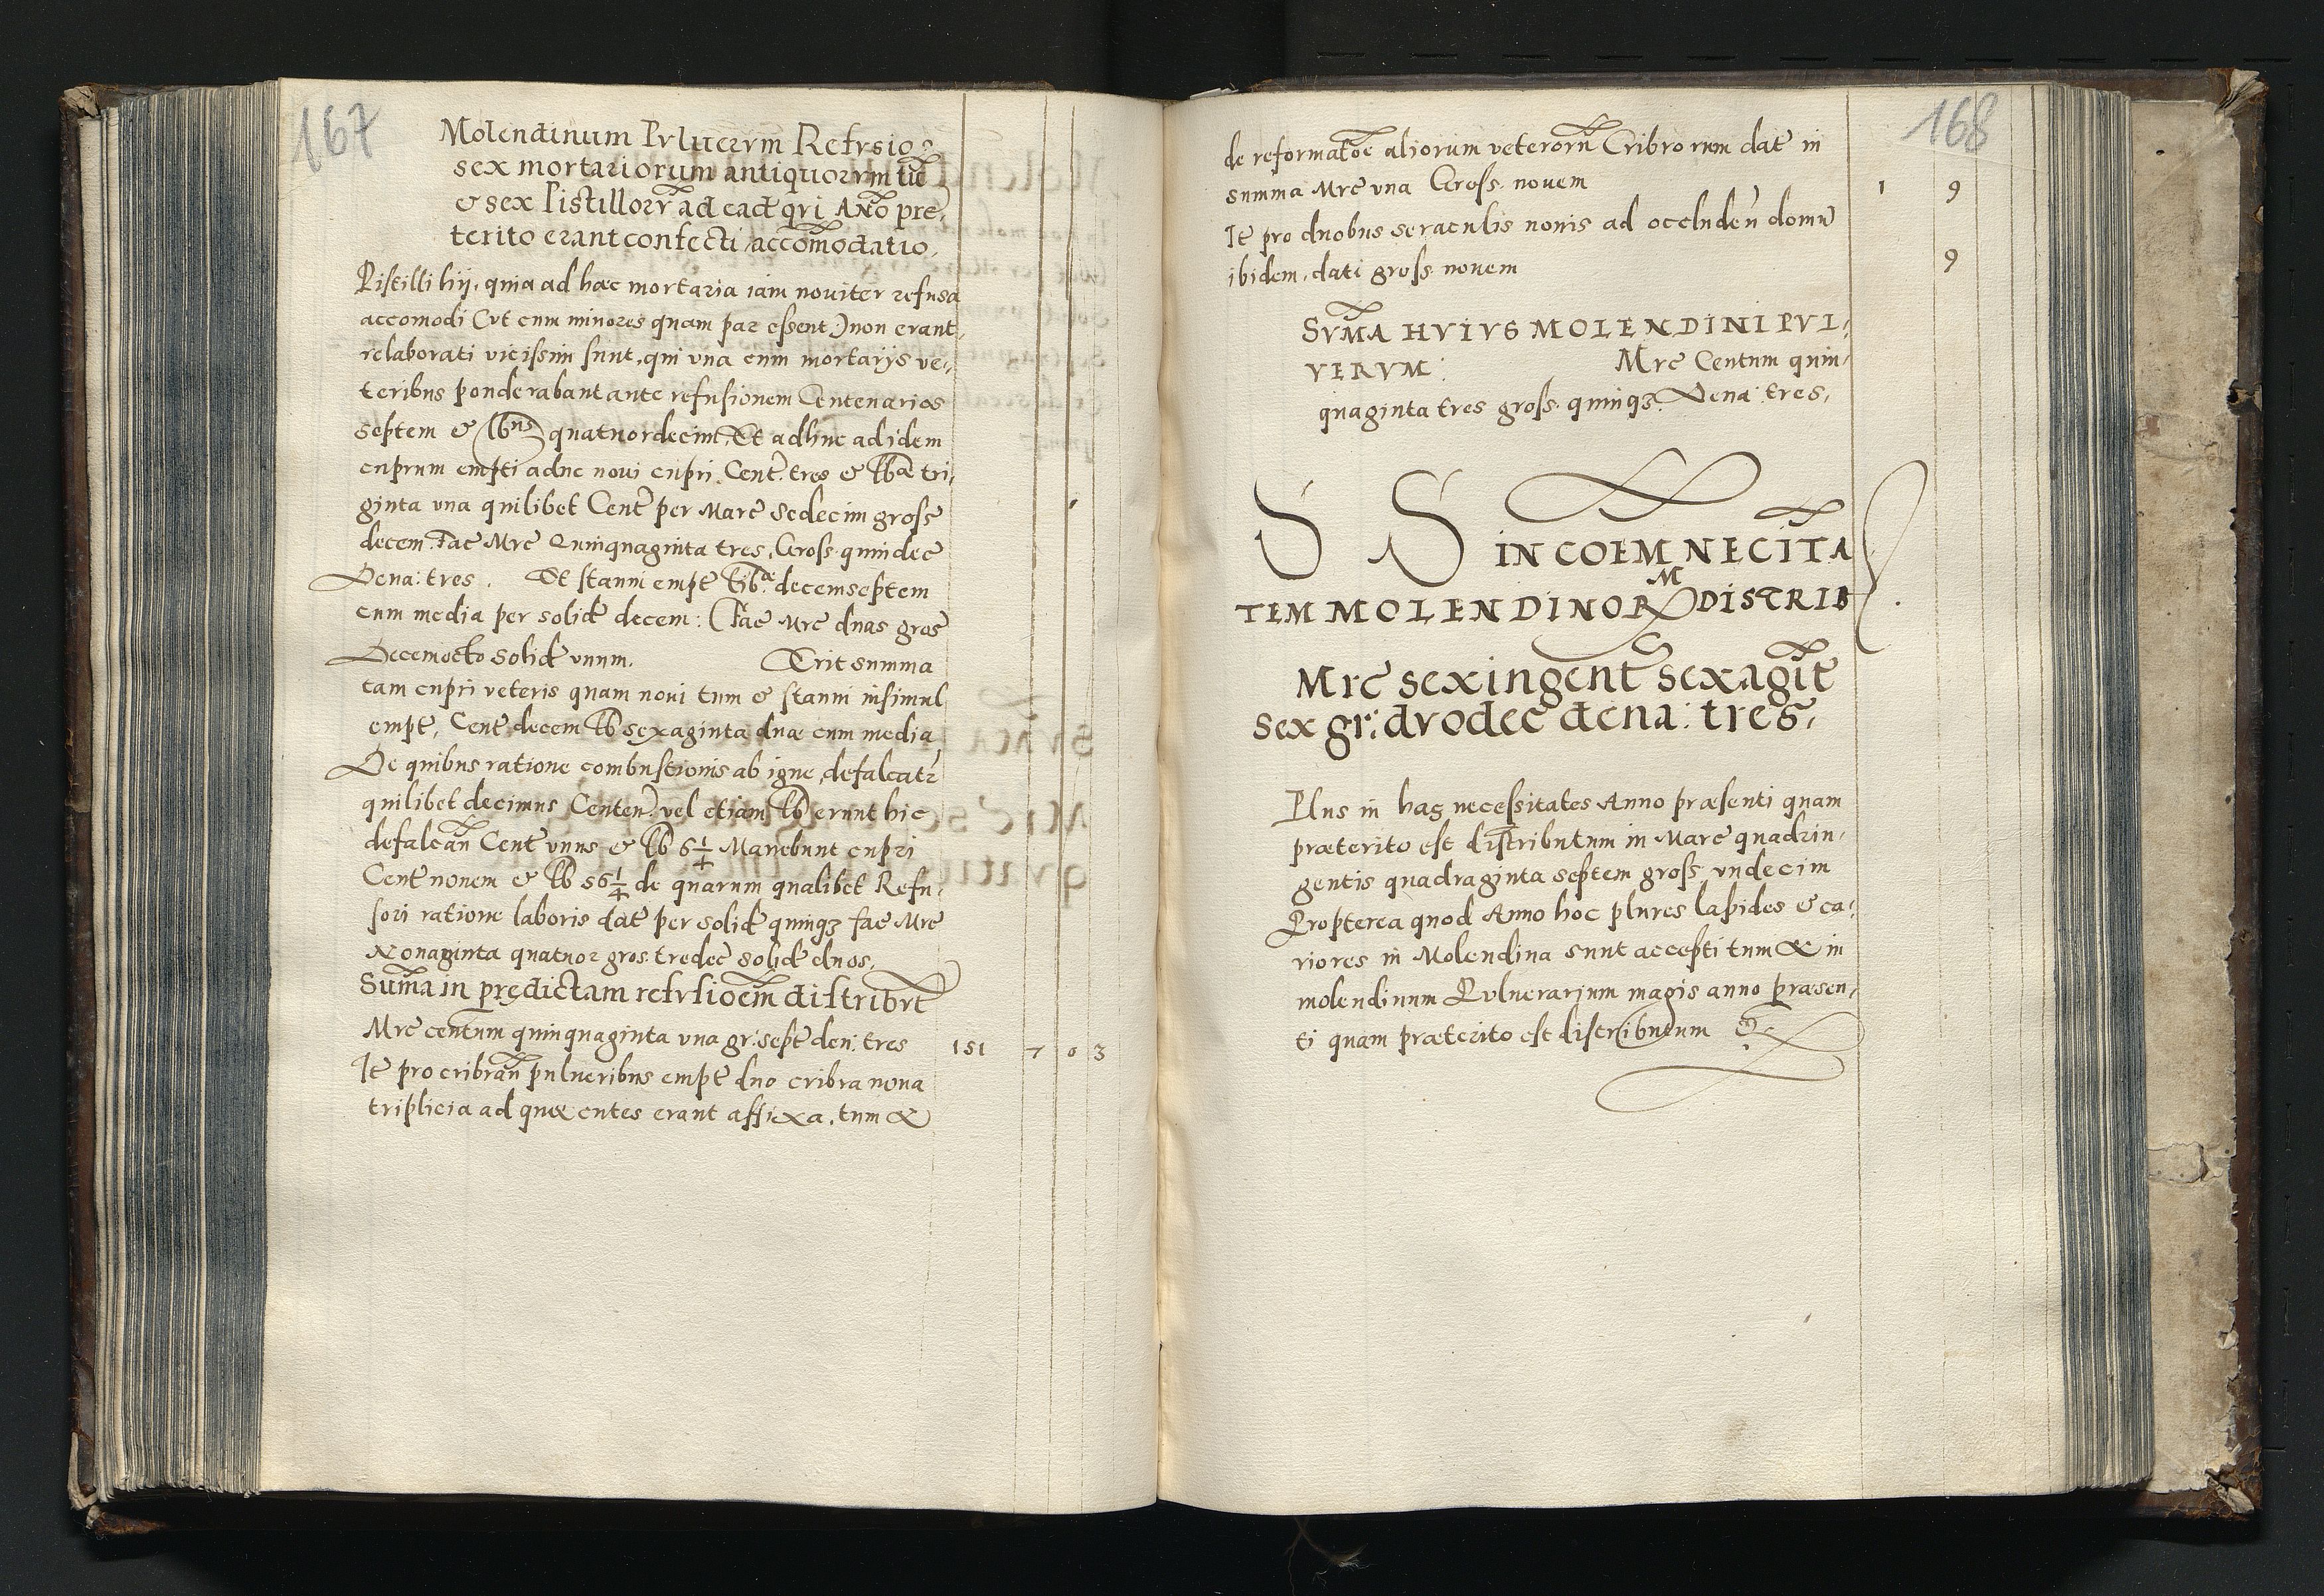 167
Molendinum Pvlucrvm Refvsio
sex mortariorum antiquorvm tū
& sex Pistillorv̄ ad ead qri Ano pre,
terito erant confecti accōmodatio.
Pistilli hij, quia ad hæc mortaria iam noviter refusa
accomodi (vt cum minores quam par essent,) non erant,
relaborati vicissim sunt, qui vna cum mortarijs ve,
teribus ponderabant ante refusionem Centenarios
septem & lbns quatuordecim, Et adhuc ad idem
cuprum empti adhc novi cupri Cent: tres & lba tri,
ginta vna quilibet Cent per Marc sedecim gross
decem. Fac Mrc Quinquaginta tres, Gross. quindec
Dena: tres. Et stanni empt lba decemseptem
cum media per solid decem: Fac Mrc duas gros
Decemocto solid vnum. Erit summa
tam cupri veteris quam novi tum & stanni insimul
empt, Cent decem lb sexaginta duæ cum media
De quibus ratione combustionis ab igne, defalcatr
quilibet decimus Centen: vel etiam lb erunt hic
defalcan Cent vnus & lb 6 1/4 Manebunt cupri
Cent nouem & lb 56 1/4 de quarum qualibet Refu,
sori ratione laboris dat per solid quinqz fac Mrc
Nonaginta quatuor gros. tredec solid duos.
Suma in prędictam refvsioem distribvt
Mrc centum quinquaginta vna gr: sept den: tres 151 7 0 3
It pro cribran pulueribus empt duo cribra noua
triplicia ad quæ cutes erant affixa, tum &
168
de reformatoe aliorum veterorū Cribrorum dat in
summa Mrc vna Gross. nouem 1 9
It pro duobus seraculis nouis ad occluden domū
ibidem, dati gross. nouem 9
SVMA HVIVS MOLENDINI PVL,
VERVM: Mrc Centum quin,
quaginta tres gross. quinqz. Dena: tres.
S S IN COEM NECITA
TEM MOLENDINOR M DISTRIB
Mrc sexingent sexagit
sex gr: dvodec dena: tres,
Plus in has necessitates Anno præsenti quam
præterito est distributum in Marc quadrin,
gentis quadraginta septem gross vndecim
Propterea quod Anno hoc plures lapides & ca,
riores in Molendina sunt accepti tum & in
molendinum Pulverarium magis anno præsen,
ti quam præterito est distributum &.